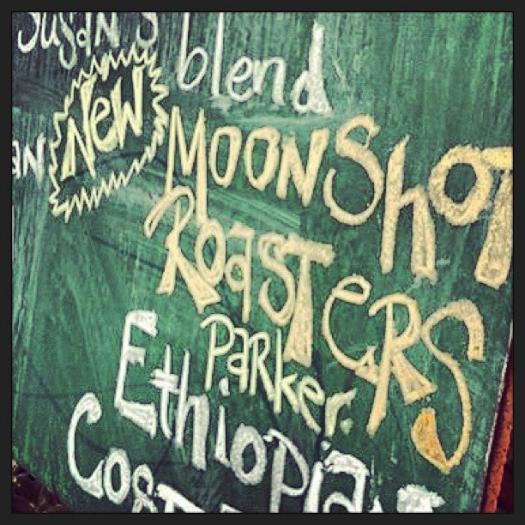 Susan's blend
New MOONShOT
ROaSTeRS
Parker.
Ethiopia